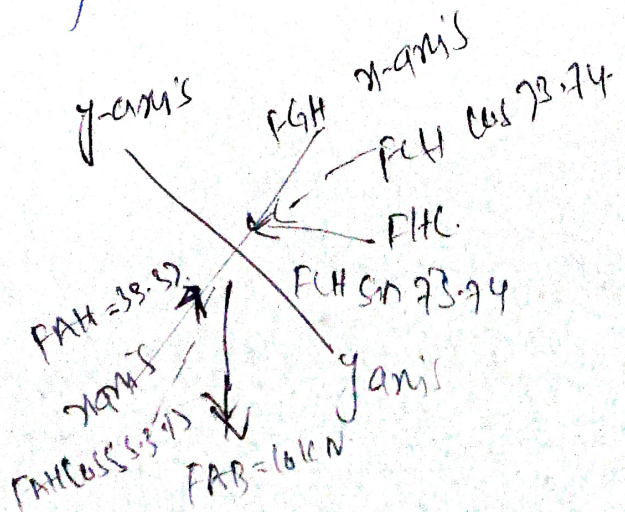 y-axis
FGH
x-axis
FCH cos 73.74
FHC
FCH sin 73.74
FAH = 33.32
x axis
y axis
FAB = 10KN